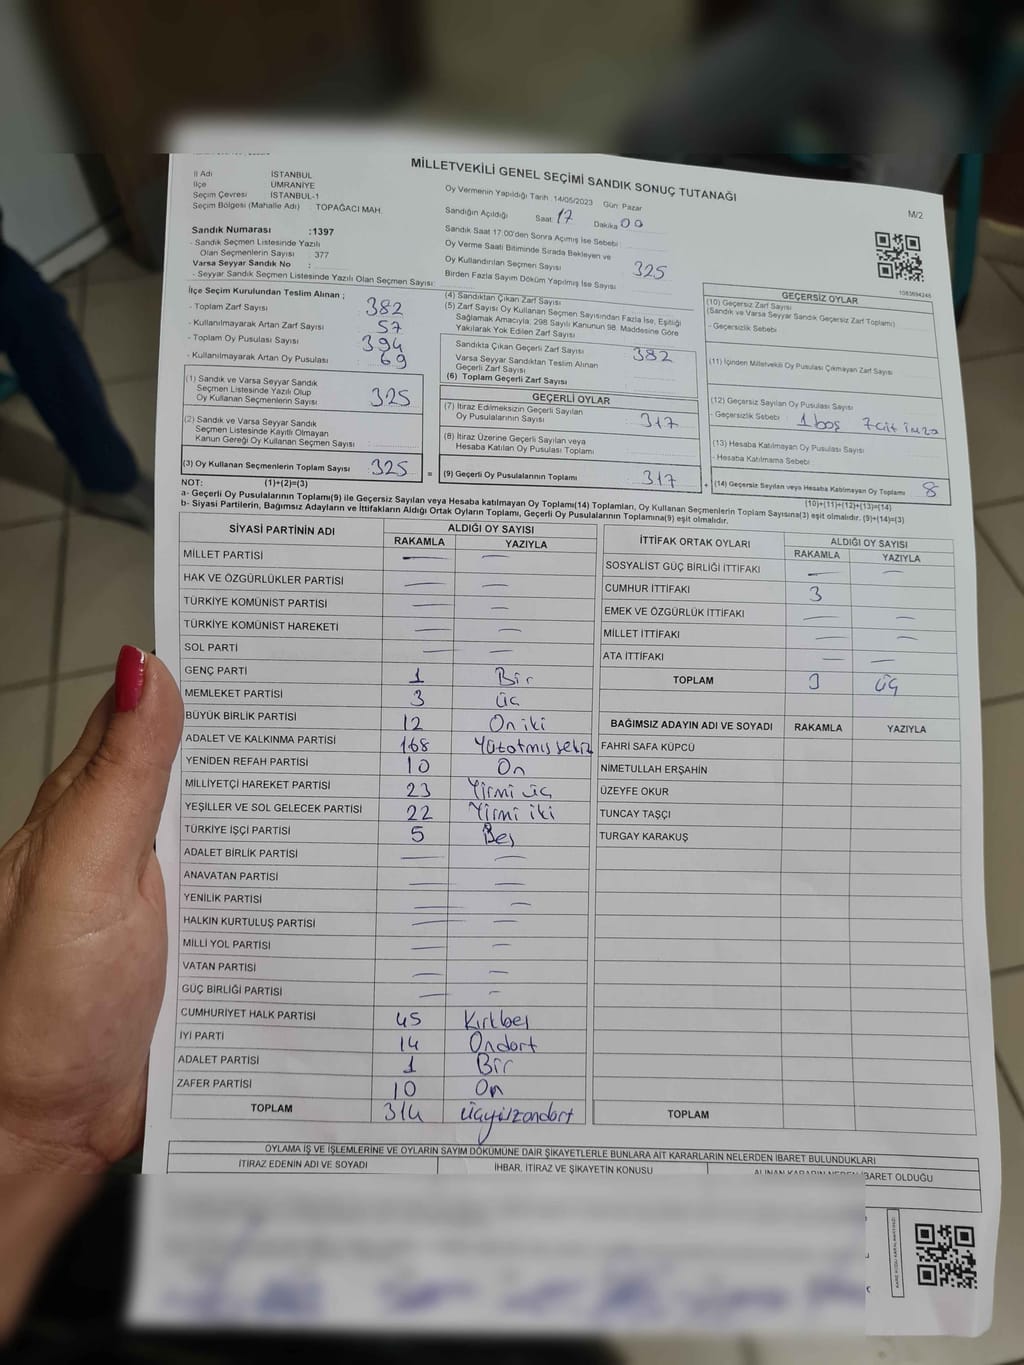 MİLLETVEKİLİ GENEL SEÇİMİ SANDIK SONUÇ TUTANAĞI
M/2
İl Adı İSTANBUL
İlçe ÜMRANİYE
Seçim Çevresi İSTANBUL-1
Seçim Bölgesi (Mahalle Adı) TOPAĞACI MAH.
Sandık Numarası :1397
- Sandık Seçmen Listesinde Yazılı
Olan Seçmenlerin Sayısı : 377
Varsa Seyyar Sandık No :
- Seyyar Sandık Seçmen Listesinde Yazılı Olan Seçmen Sayısı:
Oy Vermenin Yapıldığı Tarih :14/05/2023 Gün: Pazar
Sandığın Açıldığı Saat 17 Dakika 00
Sandık Saat 17:00'den Sonra Açımış İse Sebebi :
Oy Verme Saati Bitiminde Sırada Bekleyen ve
Oy Kullandırılan Seçmen Sayısı : 325
Birden Fazla Sayım Döküm Yapılmış İse Sayısı :
1083694248
İlçe Seçim Kurulundan Teslim Alınan ;
- Toplam Zarf Sayısı : 382
- Kullanılmayarak Artan Zarf Sayısı : 57
- Toplam Oy Pusulası Sayısı : 394
- Kullanılmayarak Artan Oy Pusulası : 69
(1) Sandık ve Varsa Seyyar Sandık
Seçmen Listesinde Yazılı Olup
Oy Kullanan Seçmenlerin Sayısı : 325
(2) Sandık ve Varsa Seyyar Sandık
Seçmen Listesinde Kayıtlı Olmayan
Kanun Gereği Oy Kullanan Seçmen Sayısı :
(3) Oy Kullanan Seçmenlerin Toplam Sayısı : 325 =
(4) Sandıktan Çıkan Zarf Sayısı
(5) Zarf Sayısı Oy Kullanan Seçmen Sayısından Fazla İse, Eşitliği
Sağlamak Amacıyla; 298 Sayılı Kanunun 98. Maddesine Göre
Yakılarak Yok Edilen Zarf Sayısı :
Sandıkta Çıkan Geçerli Zarf Sayısı : 382
Varsa Seyyar Sandıktan Teslim Alınan
Geçerli Zarf Sayısı :
(6) Toplam Geçerli Zarf Sayısı :
GEÇERLİ OYLAR
(7) İtiraz Edilmeksizin Geçerli Sayılan
Oy Pusulalarının Sayısı : 317
(8) İtiraz Üzerine Geçerli Sayılan veya
Hesaba Katılan Oy Pusulası Toplamı :
(9) Geçerli Oy Pusulalarının Toplamı : 317 +
GEÇERSİZ OYLAR
(10) Geçersiz Zarf Sayısı
(Sandık ve Varsa Seyyar Sandık Geçersiz Zarf Toplamı)
- Geçersizlik Sebebi :
(11) İçinden Milletvekili Oy Pusulası Çıkmayan Zarf Sayısı
(12) Geçersiz Sayılan Oy Pusulası Sayısı
- Geçersizlik Sebebi : 1 boş 7 çift imza
(13) Hesaba Katılmayan Oy Pusulası Sayısı
- Hesaba Katılmama Sebebi :
(14) Geçersiz Sayılan veya Hesaba Katılmayan Oy Toplamı : 8
NOT: (1)+(2)=(3) (10)+(11)+(12)+(13)=(14)
a- Geçerli Oy Pusulalarının Toplamı(9) ile Geçersiz Sayılan veya Hesaba katılmayan Oy Toplamı(14) Toplamları, Oy Kullanan Seçmenlerin Toplam Sayısına(3) eşit olmalıdır. (9)+(14)=(3)
b- Siyasi Partilerin, Bağımsız Adayların ve İttifakların Aldığı Ortak Oyların Toplamı, Geçerli Oy Pusulalarının Toplamına(9) eşit olmalıdır.
SİYASİ PARTİNİN ADI ALDIĞI OY SAYISI
RAKAMLA YAZIYLA
MİLLET PARTİSİ — —
HAK VE ÖZGÜRLÜKLER PARTİSİ — —
TÜRKİYE KOMÜNİST PARTİSİ — —
TÜRKİYE KOMÜNİST HAREKETİ — —
SOL PARTİ — —
GENÇ PARTİ 1 Bir
MEMLEKET PARTİSİ 3 üç
BÜYÜK BİRLİK PARTİSİ 12 On iki
ADALET VE KALKINMA PARTİSİ 168 Yüzatmış sekiz
YENİDEN REFAH PARTİSİ 10 On
MİLLİYETÇİ HAREKET PARTİSİ 23 Yirmi üç
YEŞİLLER VE SOL GELECEK PARTİSİ 22 Yirmi iki
TÜRKİYE İŞÇİ PARTİSİ 5 Beş
ADALET BİRLİK PARTİSİ — —
ANAVATAN PARTİSİ — —
YENİLİK PARTİSİ — —
HALKIN KURTULUŞ PARTİSİ — —
MİLLİ YOL PARTİSİ — —
VATAN PARTİSİ — —
GÜÇ BİRLİĞİ PARTİSİ — —
CUMHURİYET HALK PARTİSİ 45 Kırkbeş
İYİ PARTİ 14 Ondört
ADALET PARTİSİ 1 Bir
ZAFER PARTİSİ 10 On
TOPLAM 314 üçyüzondört
İTTİFAK ORTAK OYLARI ALDIĞI OY SAYISI
RAKAMLA YAZIYLA
SOSYALİST GÜÇ BİRLİĞİ İTTİFAKI — —
CUMHUR İTTİFAKI 3
EMEK VE ÖZGÜRLÜK İTTİFAKI — —
MİLLET İTTİFAKI — —
ATA İTTİFAKI — —
TOPLAM 3 üç
BAĞIMSIZ ADAYIN ADI VE SOYADI RAKAMLA YAZIYLA
FAHRİ SAFA KÜPCÜ
NİMETULLAH ERŞAHİN
ÜZEYFE OKUR
TUNCAY TAŞÇI
TURGAY KARAKUŞ
TOPLAM
OYLAMA İŞ VE İŞLEMLERİNE VE OYLARIN SAYIM DÖKÜMÜNE DAİR ŞİKAYETLERLE BUNLARA AİT KARARLARIN NELERDEN İBARET BULUNDUKLARI
İTİRAZ EDENİN ADI VE SOYADI İHBAR, İTİRAZ VE ŞİKAYETİN KONUSU ALINAN KARARIN NEDEN İBARET OLDUĞU